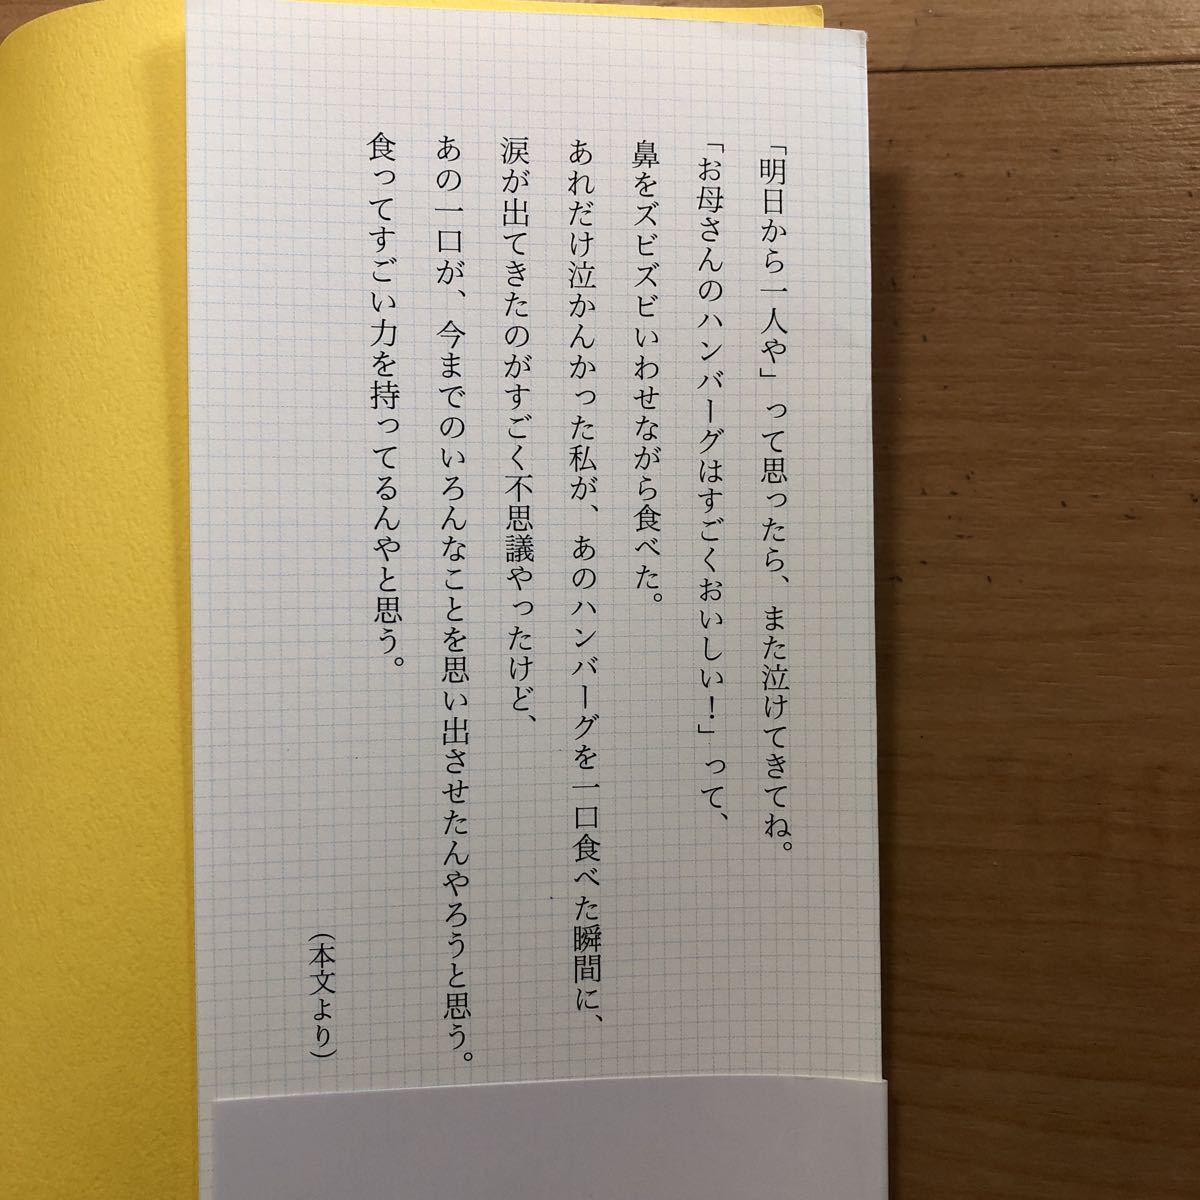 「明日から一人や」って思ったら、また泣けてきてね。
「お母さんのハンバーグはすごくおいしい！」って、
鼻をズビズビいわせながら食べた。
あれだけ泣かんかった私が、あのハンバーグを一口食べた瞬間に、
涙が出てきたのがすごく不思議やったけど、
あの一口が、今までのいろんなことを思い出させたんやろうと思う。
食ってすごい力を持ってるんやと思う。
（本文より）